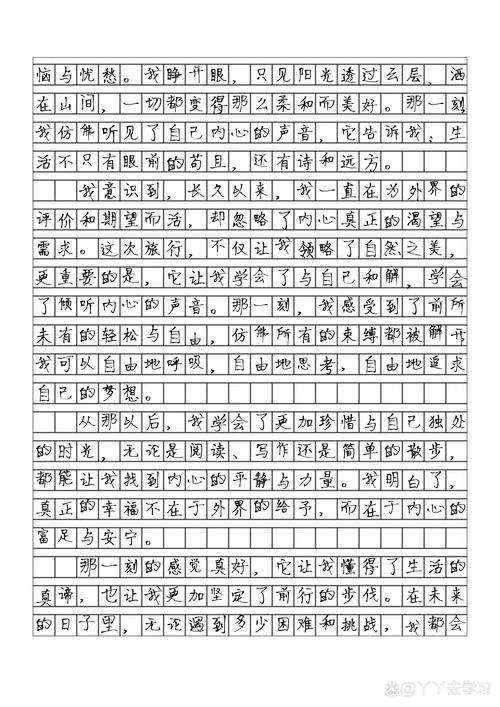 恼与忧愁。我睁开眼，只见阳光透过云层，洒
在山间，一切都变得那么柔和而美好。那一刻
我仿佛听见了自己内心的声音，它告诉我、生
活不只有眼前的苟且，还有诗和远方。
我意识到，长久以来，我一直在为外界的
评价和期望而活，却忽略了内心真正的渴望与
需求。这次旅行，不仅让我领略了自然之美，
更重要的是，它让我学会了与自己和解，学会
了倾听内心的声音。那一刻，我感受到了前所
未有的轻松与自由，仿佛所有的束缚都被解开
我可以自由地呼吸，自由地思考，自由地追求
自己的梦想。
从那以后，我学会了更加珍惜与自己独处
的时光，无论是阅读、写作还是简单的散步，
都能让我找到内心的平静与力量。我明白了，
真正的幸福不在于外界的给予，而在于内心的
富足与安宁。
那一刻的感觉真好，它让我懂得了生活的
真谛，也让我更加坚定了前行的步伐。在未来
的日子里，无论遇到多少困难和挑战，我都会
丫丫去学习